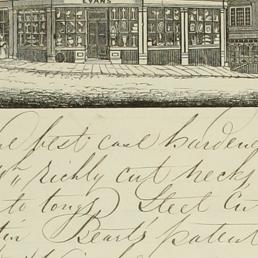 EVANS
best case hardene
richly cut necks,
to tongs Steel Cu
Bearts patent